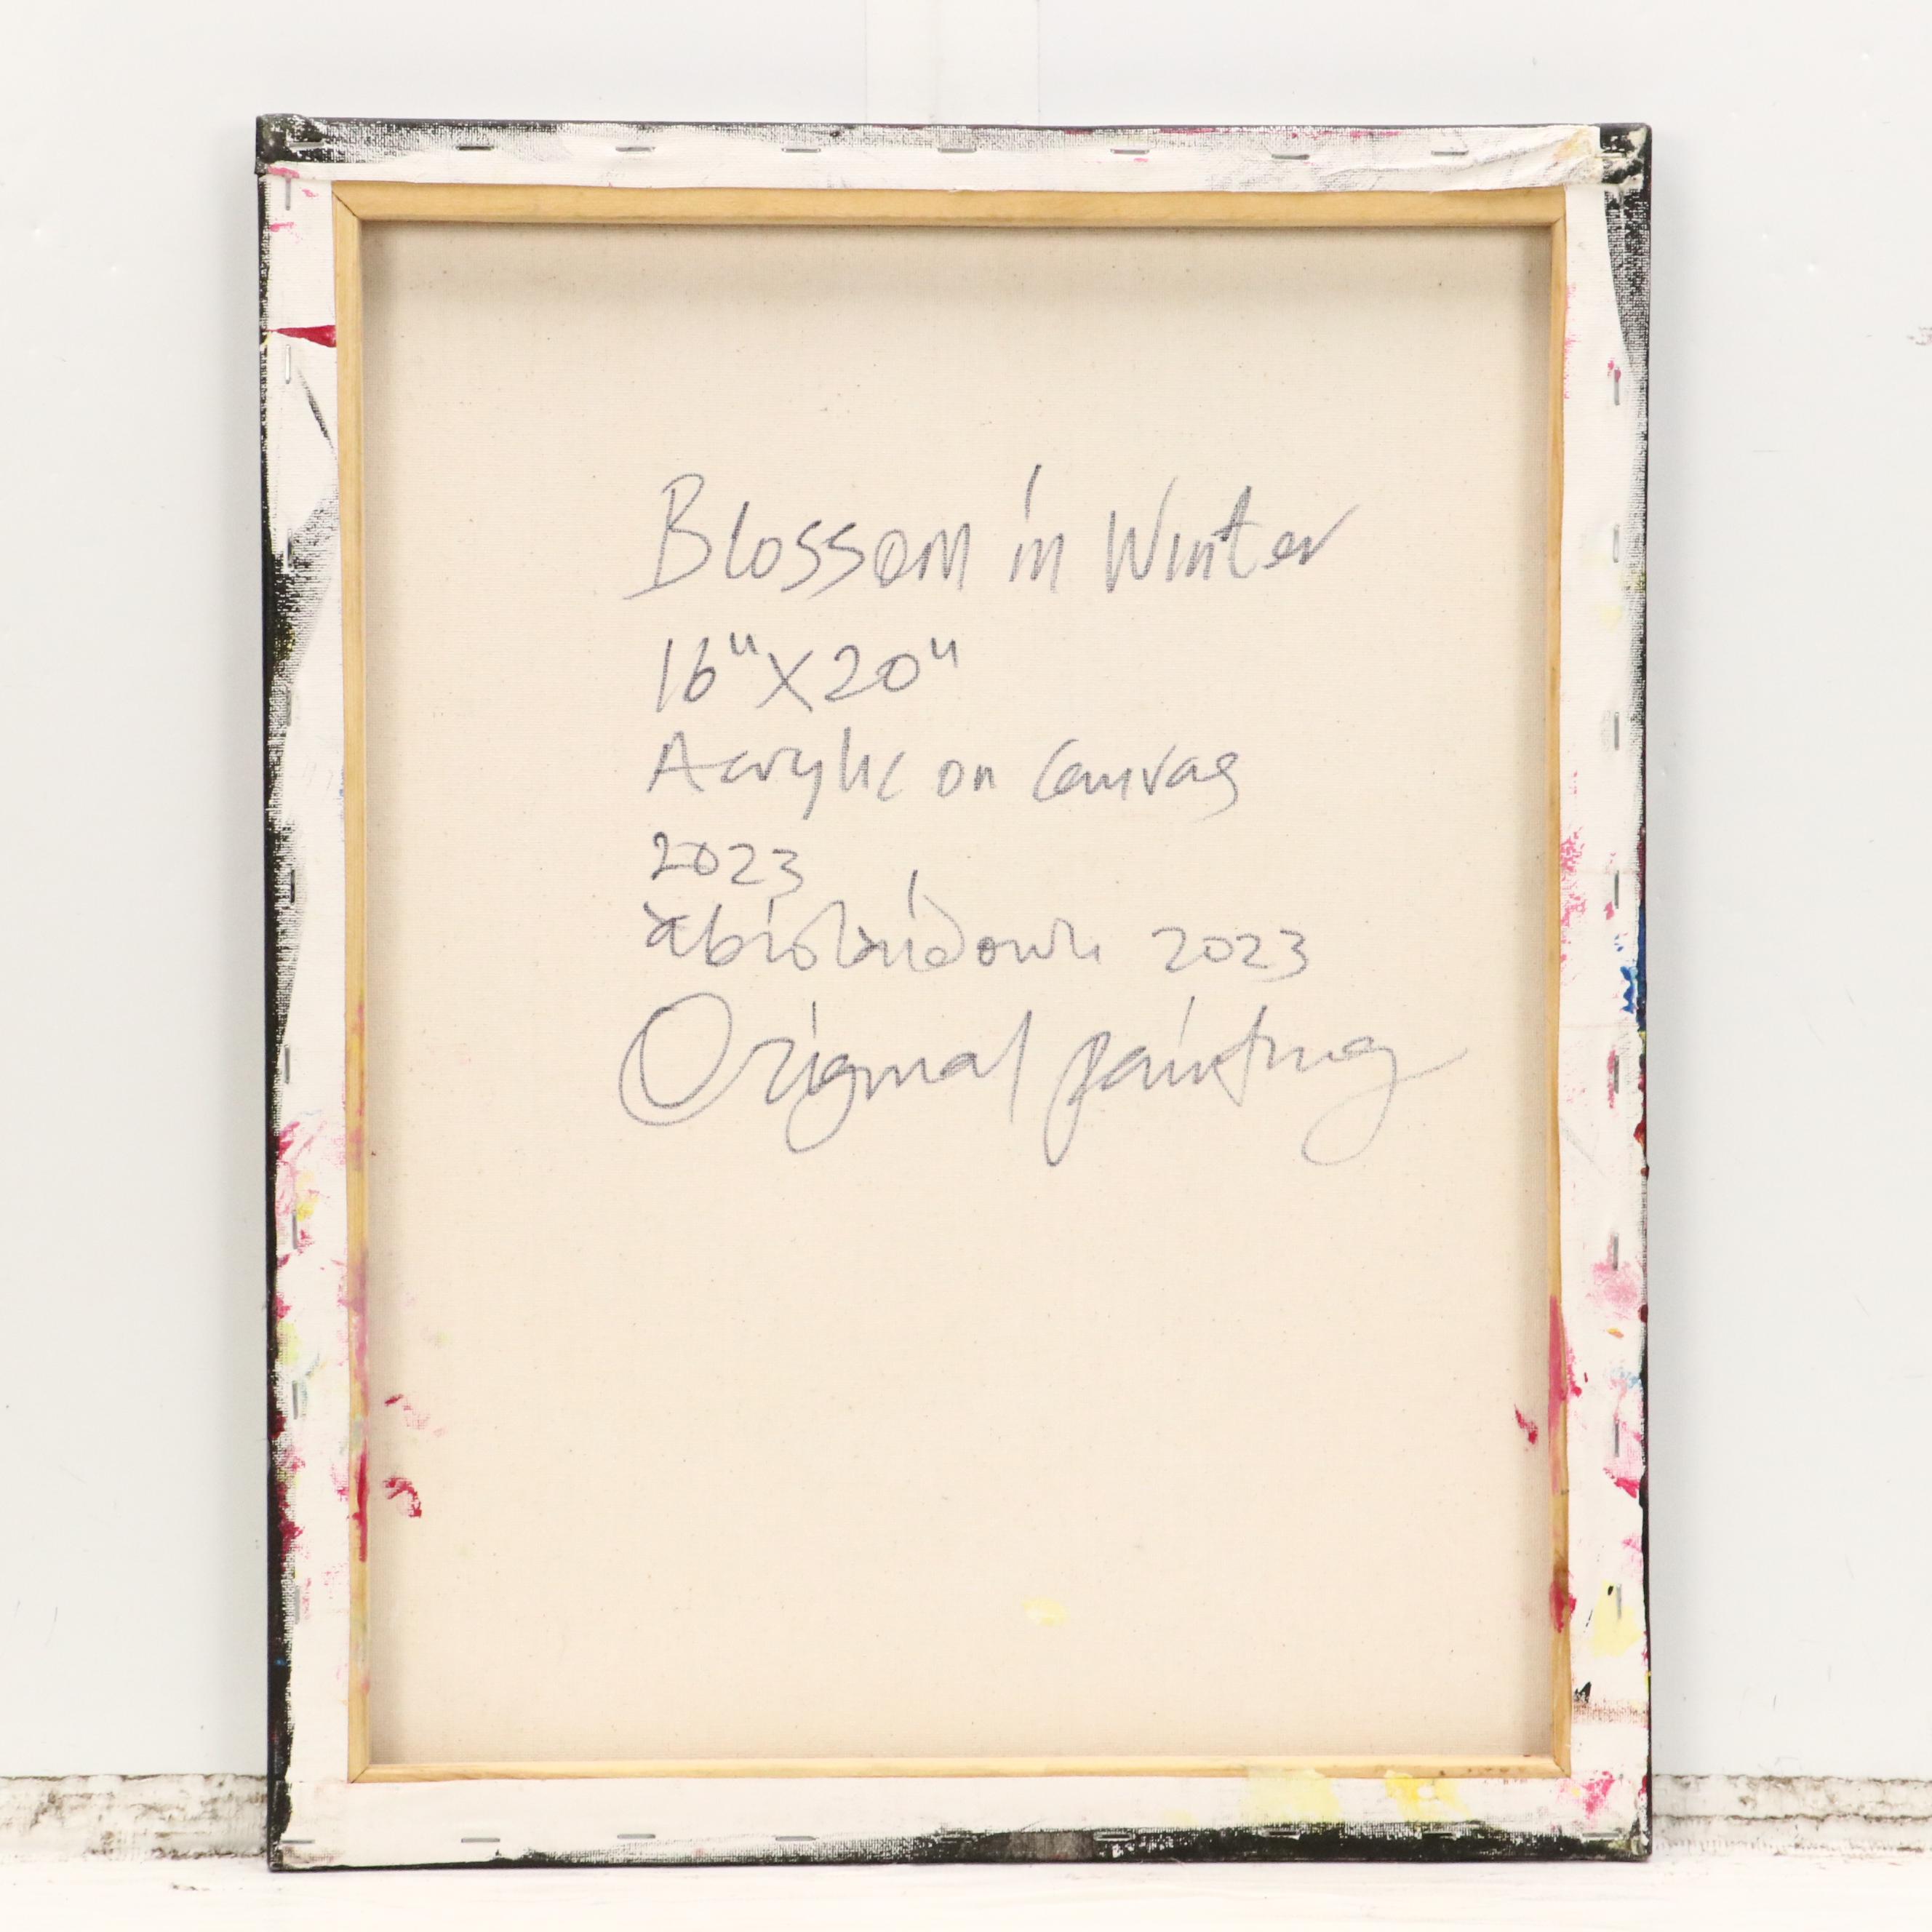 Blossom in Winter
16" X 20"
Acrylic on Canvas
2023
2023
Original painting